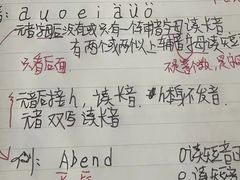 : a u o e i ä ü ö
元音字母后没有或只有一个辅音字母读长音
有两个或两个以上辅音字母读短
只看后面
元音后接h,读长音. h本身不发音
元音双写读长音
例: Abend
读短音